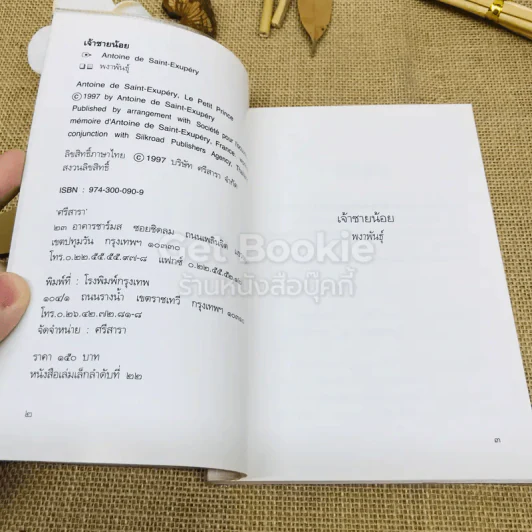 เจ้าชายน้อย
Antoine de Saint-Exupéry
พงาพันธุ์
Antoine de Saint-Exupéry, Le Petit Prince
© 1997 by Antoine de Saint-Exupéry
Published by arrangement with Société pour
mémoire d'Antoine de Saint-Exupéry, France
conjunction with Silkroad Publishers Agency,
ลิขสิทธิ์ภาษาไทย © 1997 บริษัท ศรีสารา จำกัด
สงวนลิขสิทธิ์
ISBN : 974-300-090-9
'ศรีสารา'
๒๓ อาคารชาร์มส ซอยชิดลม ถนนเพลินจิต
เขตปทุมวัน กรุงเทพฯ ๑๐๓๓๐
โทร.๐.๒๒.๕๕.๕๕.๙๗-๘ แฟกซ์ ๐.๒๒.๕๕.๕๒.
พิมพ์ที่ : โรงพิมพ์กรุงเทพ
๑๐๔/๑ ถนนรางน้ำ เขตราชเทวี กรุงเทพฯ
โทร.๐.๒๖.๔๒.๗๒.๘๑-๘
จัดจำหน่าย : ศรีสารา
ราคา ๑๕๐ บาท
หนังสือเล่มเล็กลำดับที่ ๒๒
๒
เจ้าชายน้อย
พงาพันธุ์
๓
Get Bookie
ร้านหนังสือบุ๊คกี้